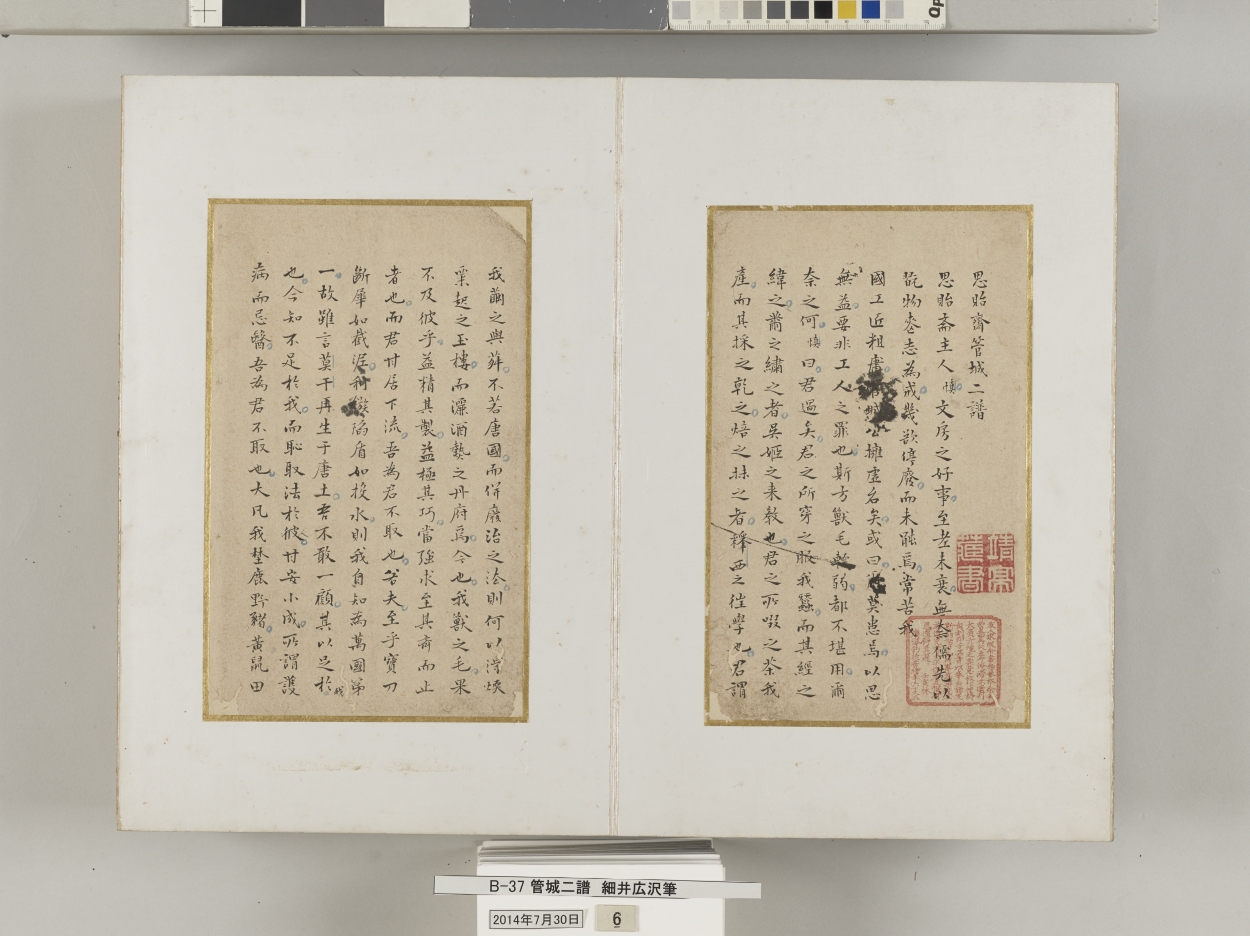 思貽齋管城二譜
思貽斎主人慎文房之好事至老未衰無奈儒先以
玩物喪志為戒幾欲停廢而未能焉常苦我
國工近粗庸管城公擁虛名矣或曰莫患焉以思
無益要非工人之罪也斯方獸毛軟弱都不堪用爾
奈之何慎曰君過矣君之所穿之服我蠶而其經之
緯之黼之繡之者吳姬之来教也君之所啜之茶我
產而其採之乾之焙之抹之者釋西之徃學也君謂
我繭之與葬不若唐國而併廢治之法則何以得燠
粟起之玉樓而灑酒熱之丹府焉今也我獣之毛果
不及彼乎益精其製益極其巧當強求至其斎而止
者也而君甘居下流吾為君不取也若夫至乎寶刀
斷犀如截泥利鏃陷盾如投水則我自知為萬國第
一故雖言莫干再生于唐土吾不敢一顧其以足於我
也今知不足於我而恥取法於彼甘安小成所謂護
病而忌醫吾為君不取也大凡我埜鹿野豬黃鼠田
B-37 管城二譜 細井広沢筆
2014年7月30日 6